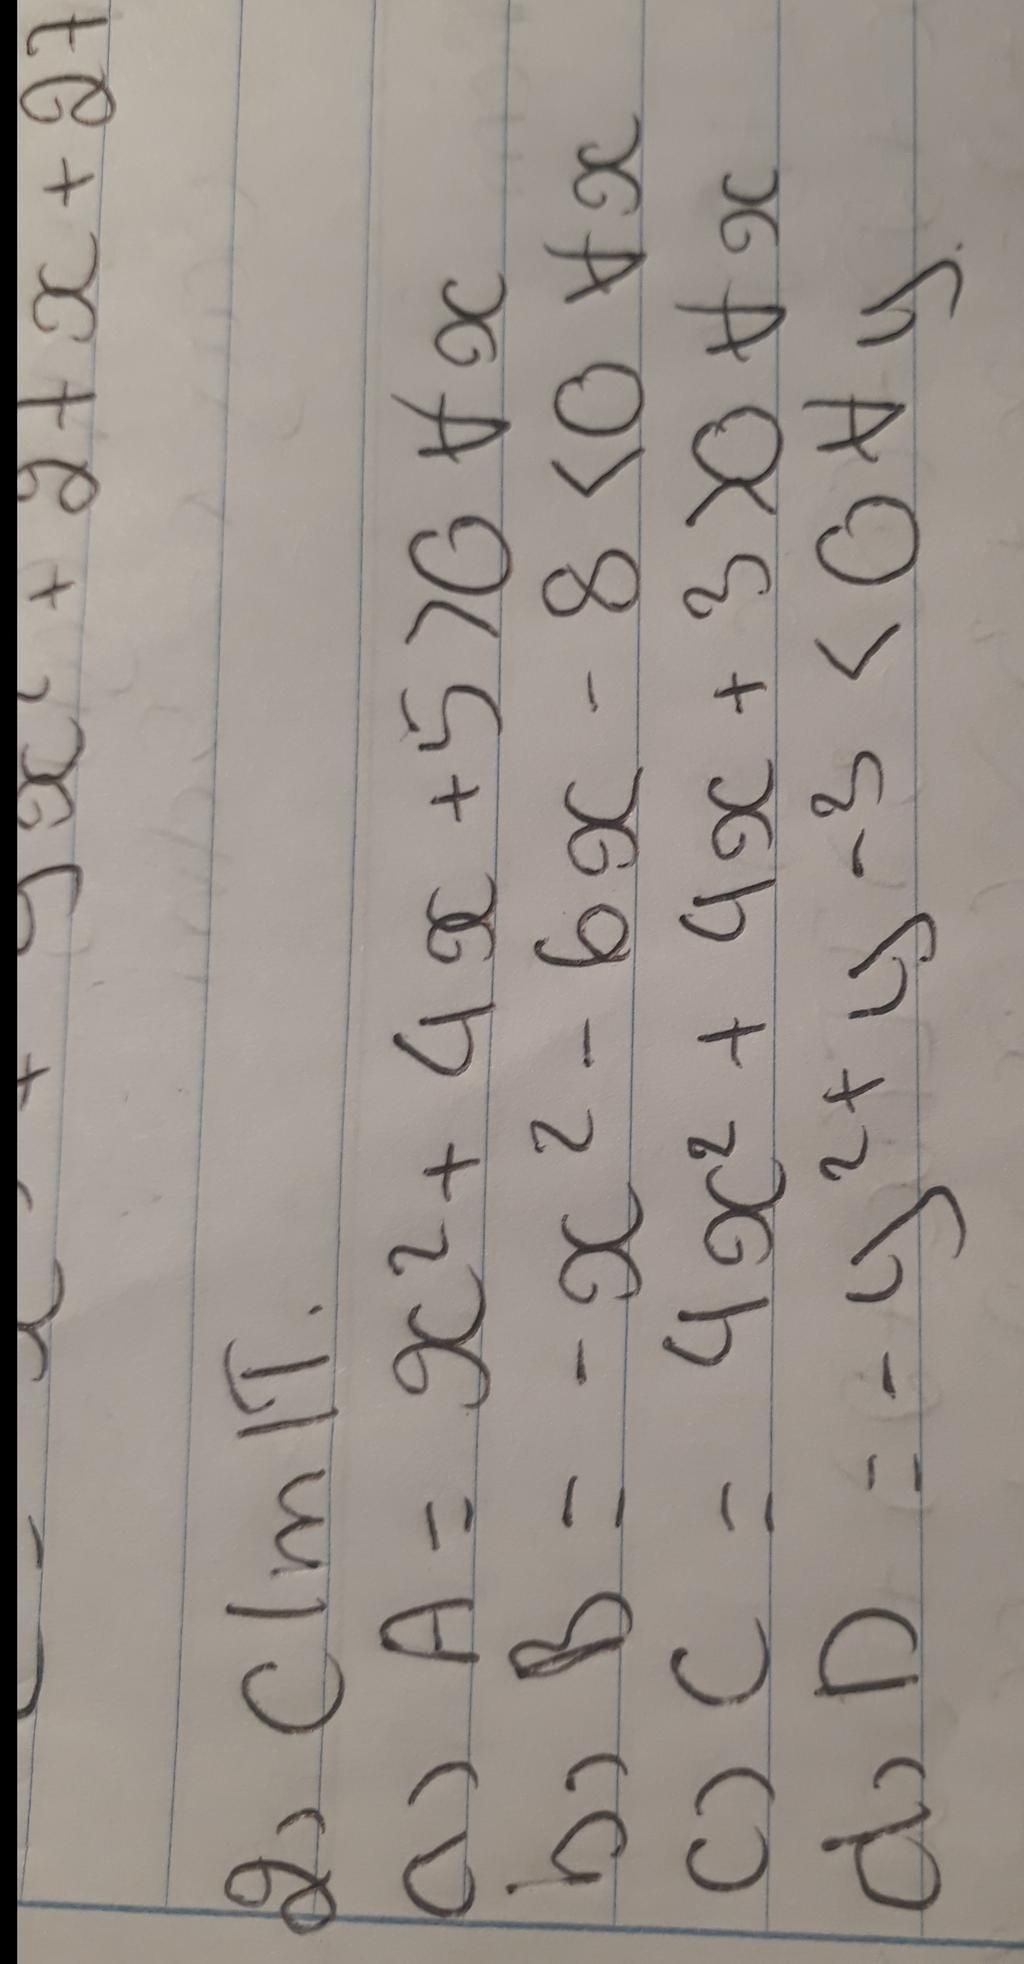 x² + 2 + x + 27
2) C/m RT.
a) A = x² + 4x + 5 > 0 ∀x
b) B = - x² - 6x - 8 < 0 ∀x
c) C = 4x² + 4x + 3 > 0 ∀x
d) D = - y² + y - 3 < 0 ∀y.